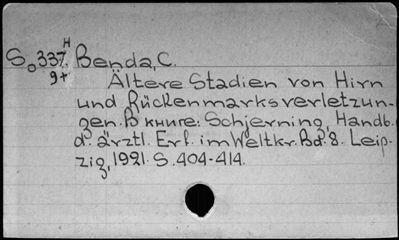 So337.H Benda, C.
9+
Ältere Stadien von Hirn
und Rückenmarksverletzun-
gen. В книге: Schjerning, Handb.
d. ärztl. Erf. im Weltkr. Bd. 8. Leip-
zig, 1921. S. 404-414.